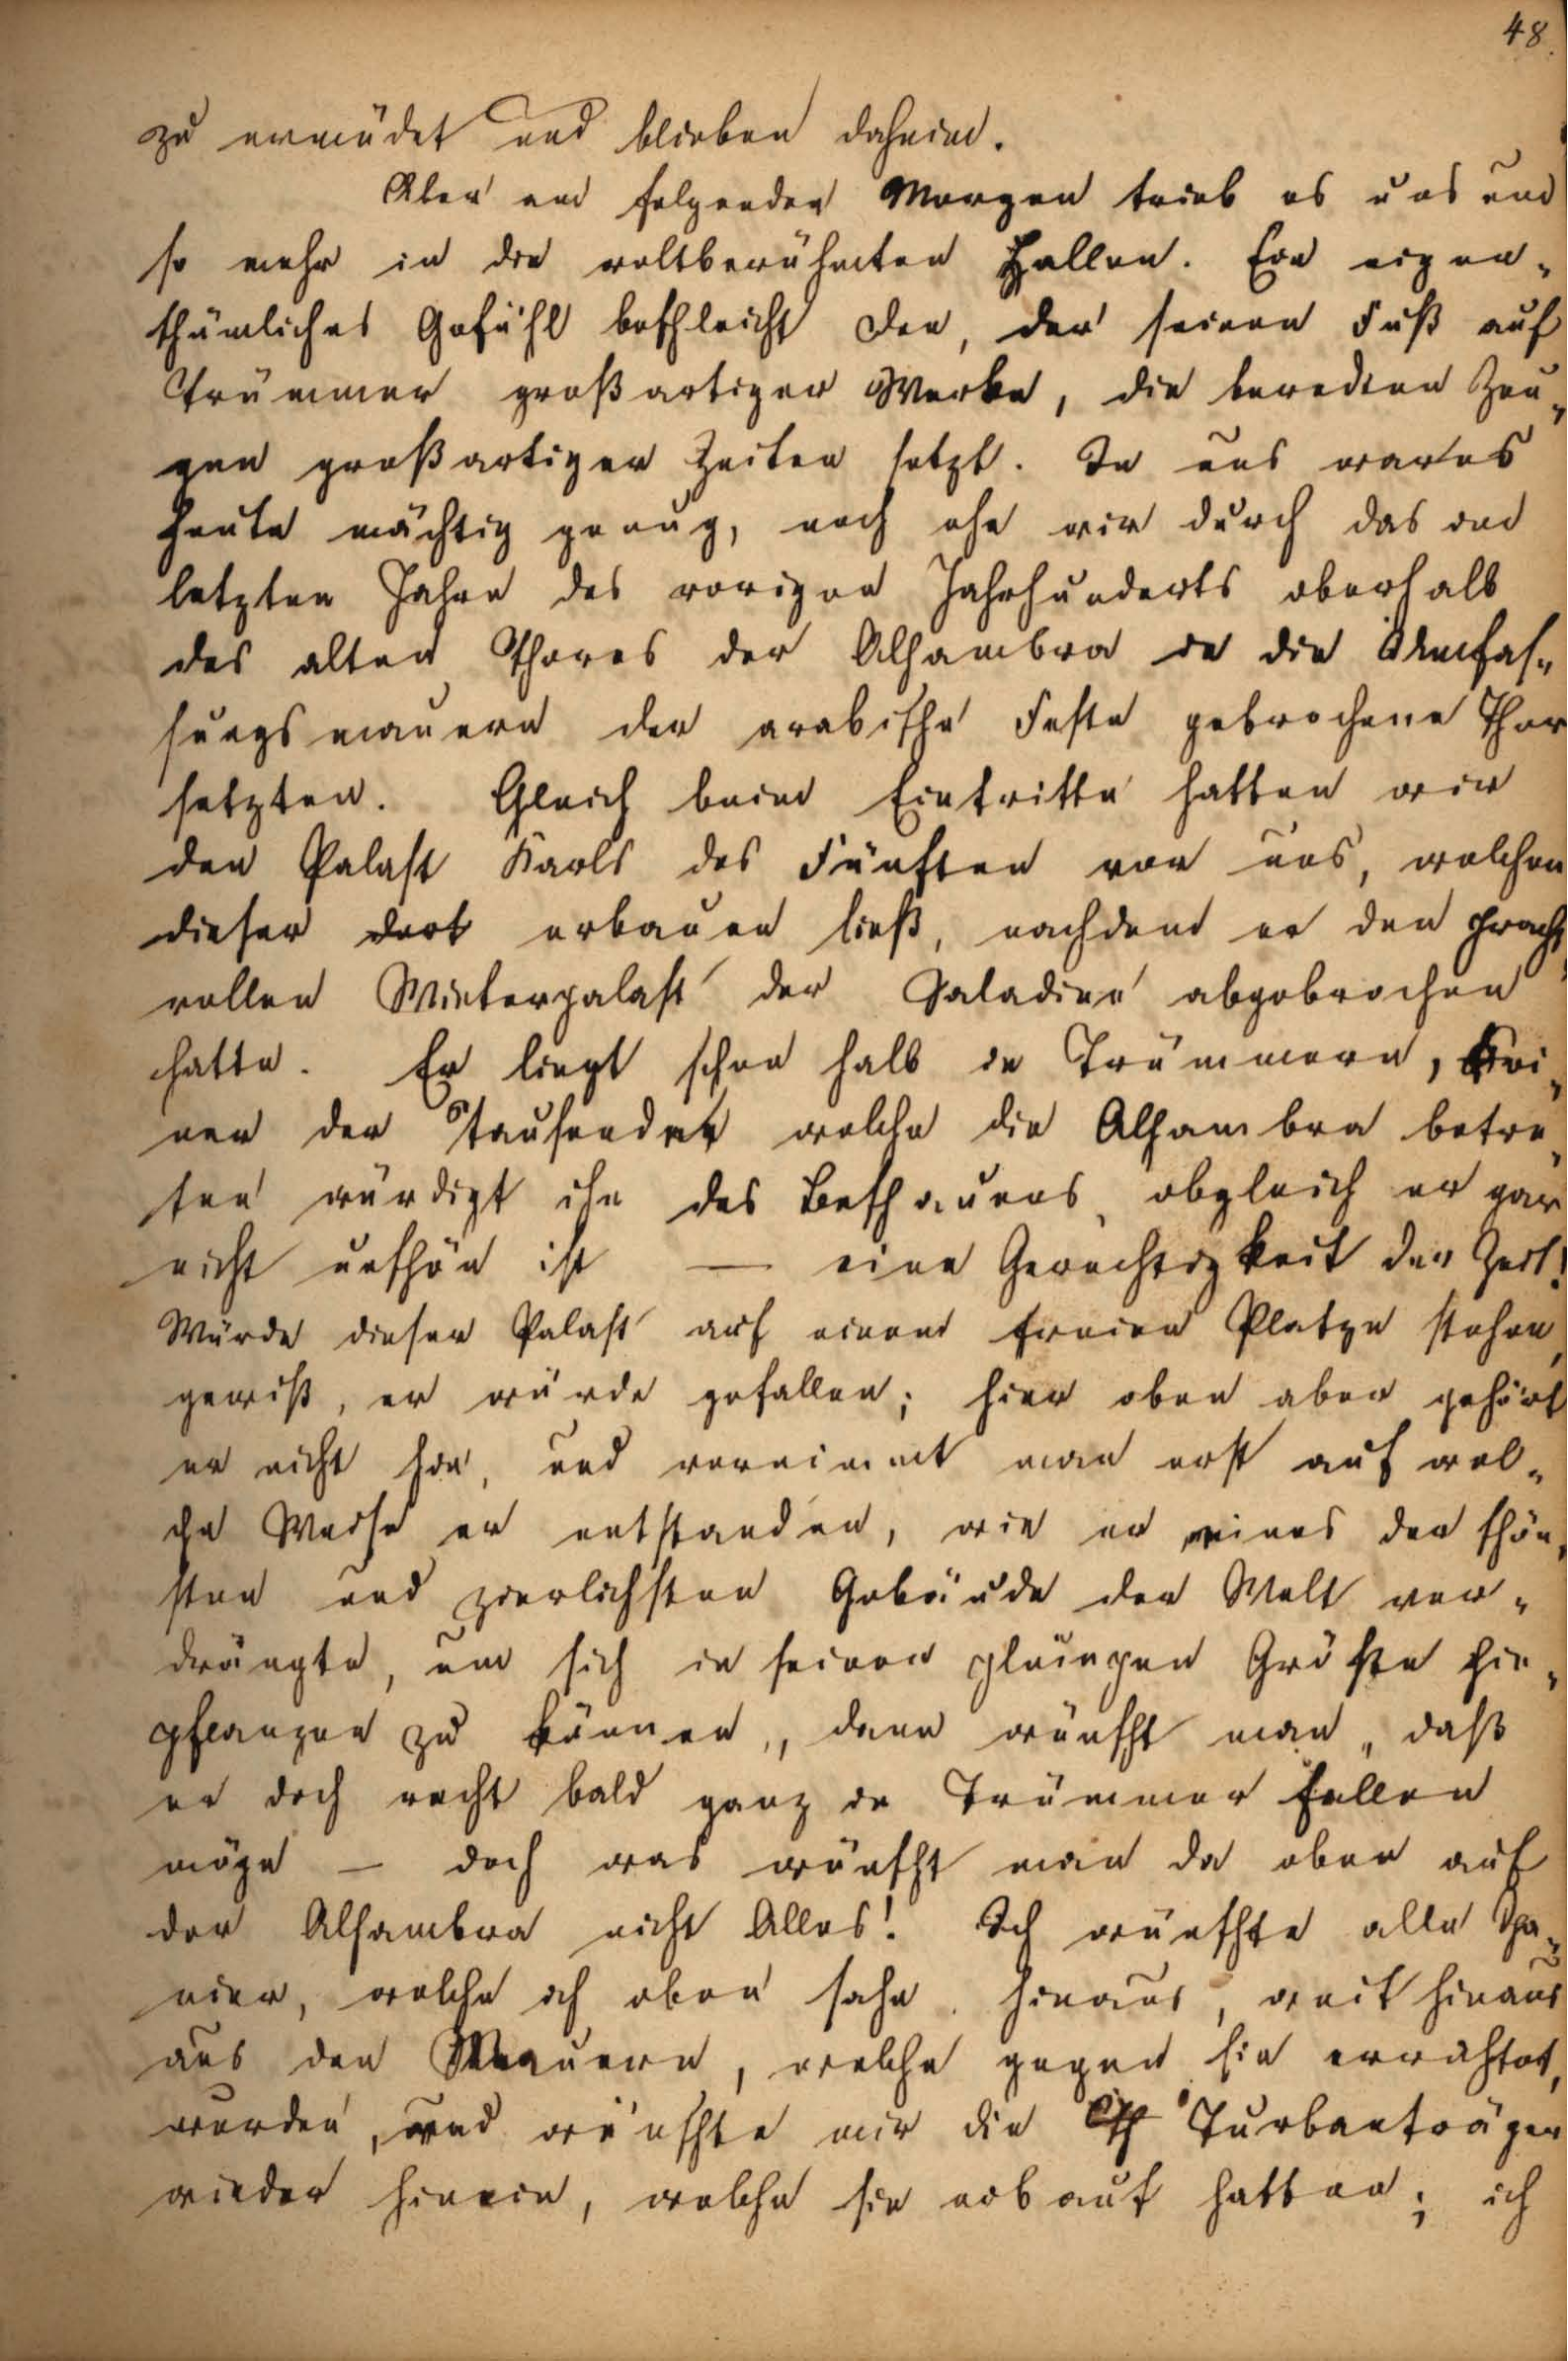 48.
zu ermüdet und blieben daheim.
Aber am folgenden Morgen trieb es uns um
so mehr in die weltberühmten Hallen. Ein eigen-
thümliches Gefühl beschleicht den, der seinen Fuß auf
Trümmer großartiger Werke, die beredten Zeu-
gen großartiger Zeiten setzt. In uns war es
heute mächtig genug, noch ehe wir durch das in
letzten Jahren des vorigen Jahrhunderts oberhalb
des alten Thores der Alhambra in die Umfas-
sungsmauern der arabische Feste gebrochene Thor
setzten. Gleich beim Eintritte hatten wir
den Palast Karls des Fünften vor uns, welchen
dieser dort erbauen ließ, nachdem er den pracht-
vollen Winterpalast der Saladine abgebrochen
hatte. Er liegt schon halb in Trümmern, Kei-
ner der Tausenden welche die Alhambra betre-
ten würdigt ihn des Beschauens, obgleich er gar
nicht unschön ist — eine Gerechtigkeit der Zeit!
Würde dieser Palast auf einem freien Platze stehen,
gewiß, er würde gefallen; hier oben aber gehört
er nicht hin, und vernimmt man erst auf wel-
che Weise er entstanden, wie er eines der schön-
sten und zierlichsten Gebäude der Welt ver-
drängte, um sich in seiner Größe hin-
pflanzen zu können, dann wünscht man, daß
er doch recht bald ganz in Trümmer fallen
möge — doch was wünscht man da oben auf
der Alhambra nicht Alles! Ich wünschte alle Spa-
nier, welche ich oben sahe, hinaus, weit hinaus
aus den Mauern, welche gegen sie errichtet
wurden, und wünschte mir die Turbanträger
wieder hinein, welche sie erbaut hatten; ich